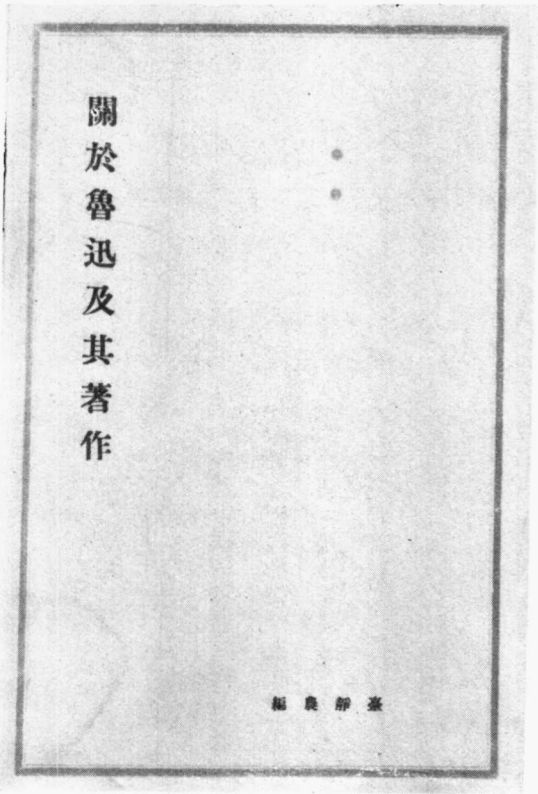 關於魯迅及其著作
臺靜農編